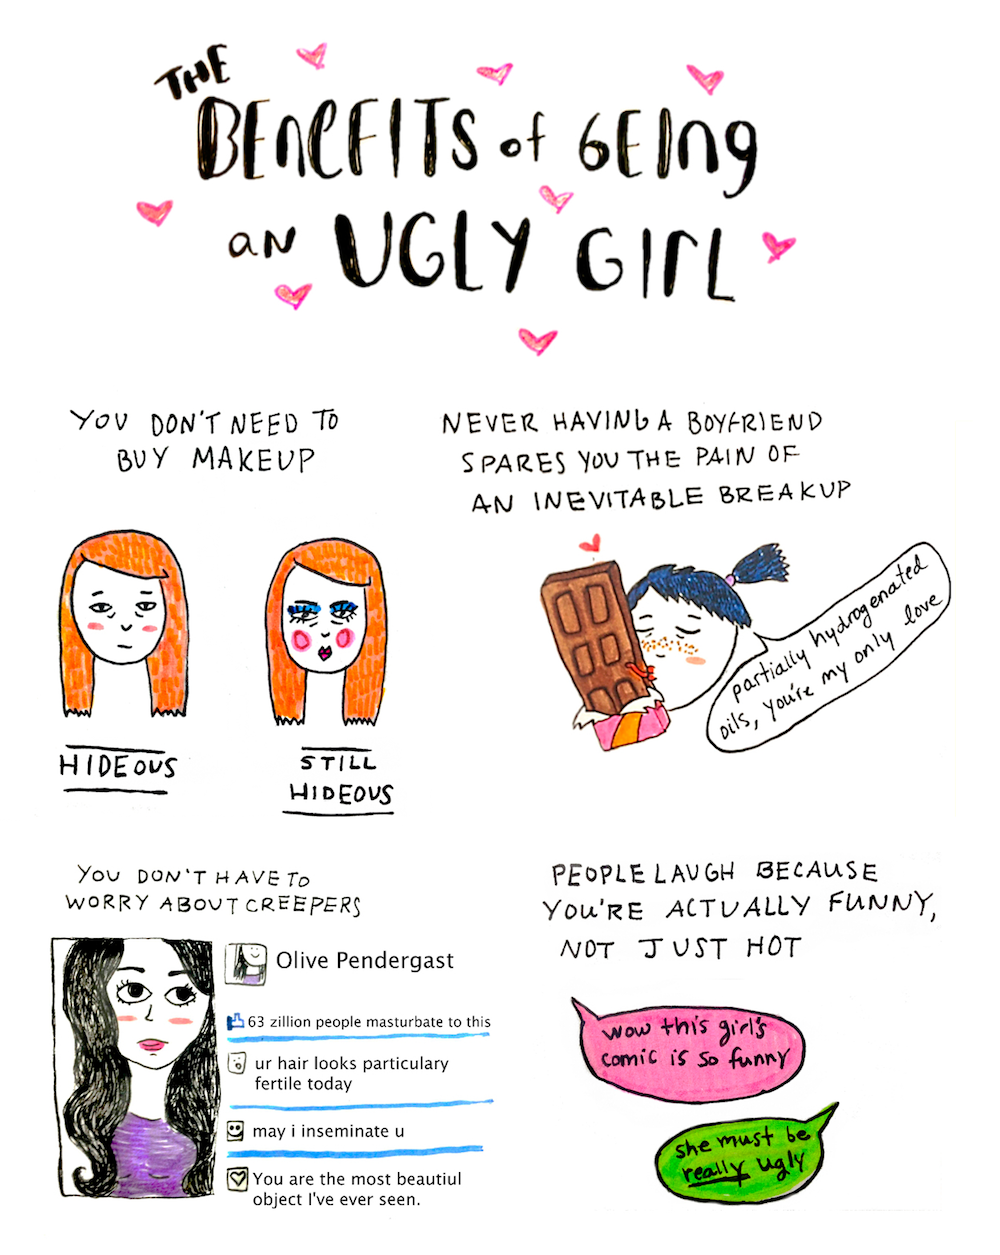 THE
BENEFITS of BEING
AN UGLY GIRL
YOU DON'T NEED TO
BUY MAKEUP
HIDEOUS
STILL
HIDEOUS
NEVER HAVING A BOYFRIEND
SPARES YOU THE PAIN OF
AN INEVITABLE BREAKUP
partially hydrogenated
oils, you're my only love
YOU DON'T HAVE TO
WORRY ABOUT CREEPERS
Olive Pendergast
63 zillion people masturbate to this
ur hair looks particulary
fertile today
may i inseminate u
You are the most beautiul
object I've ever seen.
PEOPLE LAUGH BECAUSE
YOU'RE ACTUALLY FUNNY,
NOT JUST HOT
wow this girl's
comic is so funny
she must be
really ugly